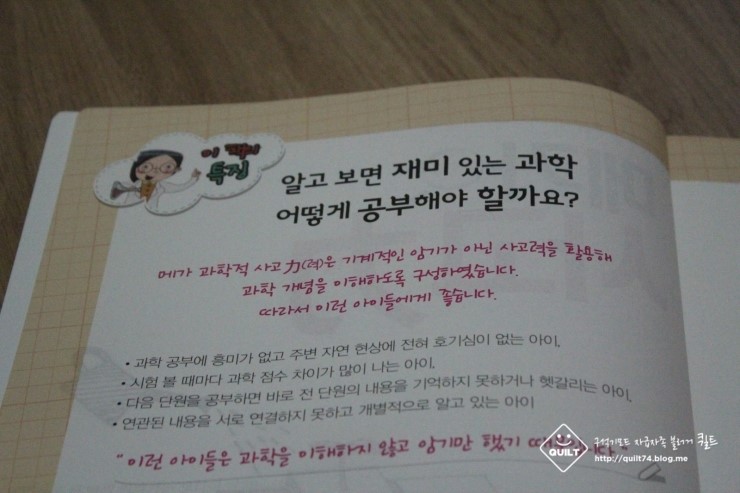 이 책의
특징
알고 보면 재미 있는 과학
어떻게 공부해야 할까요?
메가 과학적 사고力(력)은 기계적인 암기가 아닌 사고력을 활용해
과학 개념을 이해하도록 구성하였습니다.
따라서 이런 아이들에게 좋습니다.
• 과학 공부에 흥미가 없고 주변 자연 현상에 전혀 호기심이 없는 아이.
• 시험 볼 때마다 과학 점수 차이가 많이 나는 아이.
• 다음 단원을 공부하면 바로 전 단원의 내용을 기억하지 못하거나 헷갈리는 아이.
• 연관된 내용을 서로 연결하지 못하고 개별적으로 알고 있는 아이
"이런 아이들은 과학을 이해하지 않고 암기만 했기
QUILT
자급자족 블로거 퀼트
http://quilt74.blog.me